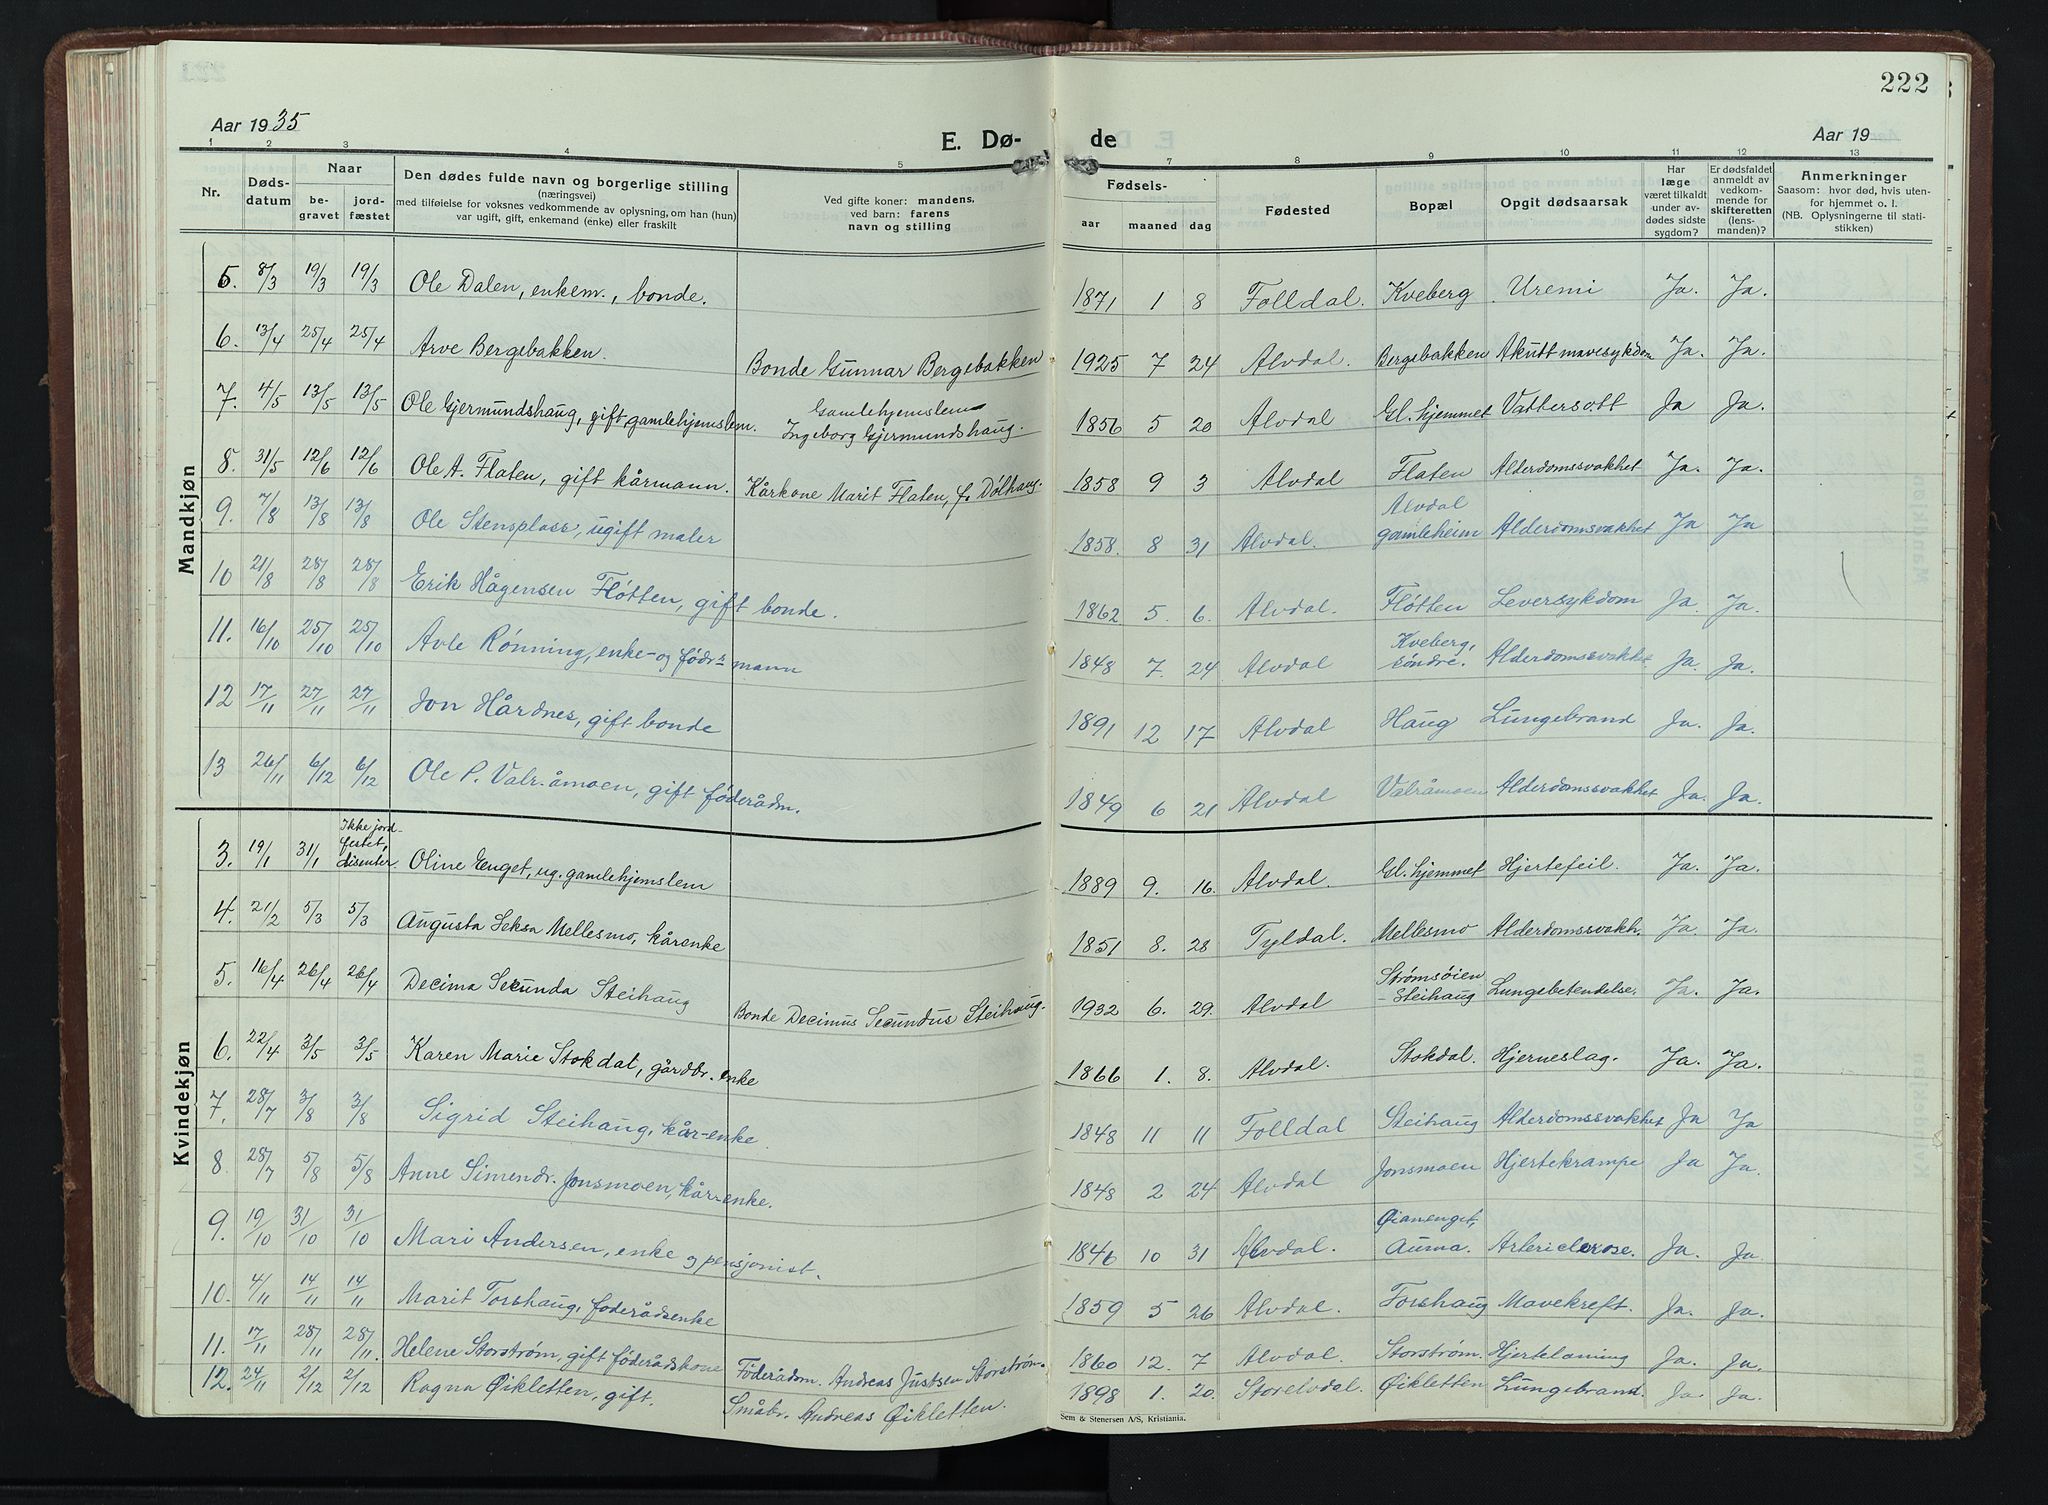 222
Aar 1935
E. Dø-
de
Aar 19
1 2 3 4 5 7 8 9 10 11 12 13
Nr. | Dødsdatum | Naar begravet | jordfæstet | Den dødes fulde navn og borgerlige stilling (næringsvei) med tilføielse for voksnes vedkommende av oplysning, om han (hun) var ugift, gift, enkemand (enke) eller fraskilt | Ved gifte koner: mandens, ved barn: farens navn og stilling | Fødsels- aar | maaned | dag | Fødested | Bopæl | Opgit dødsaarsak | Har læge været tilkaldt under avdødes sidste sygdom? | Er dødsfaldet anmeldt av vedkommende for skifteretten (lensmanden)? | Anmerkninger Saasom: hvor død, hvis utenfor hjemmet o. l. (NB. Oplysningerne til statistikken)
Mandkjøn
5. 8/3 19/3 19/3 Ole Dalen, enkem., bonde. 1871 1 8 Folldal. Kveberg Uremi Ja. Ja.
6. 13/4 25/4 25/4 Arve Bergsbakken. Bonde Gunnar Bergsbakken 1925 7 24 Alvdal. Bergsbakken Akutt mavesykdom Ja. Ja.
7. 4/5 13/5 13/5 Ole Gjermundshaug, gift, gamlehjemslem. Gamlehjemslem Ingeborg Gjermundshaug. 1856 5 20 Alvdal Gl. hjemmet Vattersott Ja Ja.
8. 31/5 12/6 12/6 Ole A. Flaten, gift kårmann. Kårkone Marit Flaten, f. Dølhaug. 1858 9 3 Alvdal Flaten Alderdomssvakhet Ja. Ja.
9. 7/8 13/8 13/8 Ole Stensplass, ugift maler 1858. 8 31 Alvdal. Alvdal gamleheim Alderdomsvakhet Ja Ja
10 21/8 28/8 28/8 Erik Hågensen Fløtten, gift bonde. 1862 5. 6. Alvdal. Fløtten Leversykdom Ja. Ja.
11. 16/10 25/10 25/10 Avle Rønning, enke- og fødrsmann 1848 7. 24 Alvdal Kveberg, søndre. Alderdomssvakhet Ja. Ja.
12 17/11 27/11 27/11 Jon Hårdnes, gift bonde 1891 12 17 Alvdal Haug Lungebrand Ja. Ja.
13 26/11 6/12 6/12 Ole P. Valråmoen, gift føderådm. 1849 6 21 Alvdal Valråmoen Alderdomssvakhet Ja. Ja.
Kvindekjøn
3. 19/1 31/1 Ikke jordfestet, disenter. Oline Enget, ug. gamlehjemslem 1889 9. 16. Alvdal. Gl. hjemmet Hjertefeil. Ja. Ja.
4. 21/2 5/3 5/3 Augusta Seksa Mellesmo, kårenke 1851 8. 28 Tyldal. Mellesmo Alderdomssvakh. Ja. Ja.
5. 16/4 26/4 26/4 Decima Secunda Steihaug Bonde Decimus Secundus Steihaug. 1932 6. 29. Alvdal Strømsøien - Steihaug Lungebetendelse. Ja. Ja.
6. 22/4 3/5 3/5 Karen Marie Stokdal, gårdbr. enke 1866 1. 8. Alvdal. Stokdal. Hjerneslag. Ja. Ja.
7. 28/7 3/8 3/8 Sigrid Steihaug, kår-enke 1848 11 11 Folldal Steihaug Alderdomssvakhet Ja Ja
8 28/7 5/8 5/8 Anne Simendr. Jonsmoen, kår-enke. 1848 2 24 Alvdal Jonsmoen Hjertekrampe Ja Ja.
9. 19/10 31/10 31/10 Mari Andersen, enke og pensjonist. 1846 10 31 Alvdal. Øianenget, Auma. Ja. Ja.
10. 4/11 14/11 14/11 Marit Torshaug, føderådsenke 1859 5 26 Alvdal. Torshaug Mavekreft. Ja. Ja.
11. 17/11 28/11 28/11. Helene Storstrøm, gift føderådskone Føderådm. Andreas Justsen Storstrøm. 1860 12. 7 Alvdal. Storstrøm. Hjertelamning Ja. Ja.
12. 24/11 2/12 2/12 Ragna Øikletten, gift. Småbr. Andreas Øikletten. 1898 1. 20. Storelvdal. Øikletten Lungebrand. Ja. Ja.
Sem & Stenersen A/S, Kristiania.